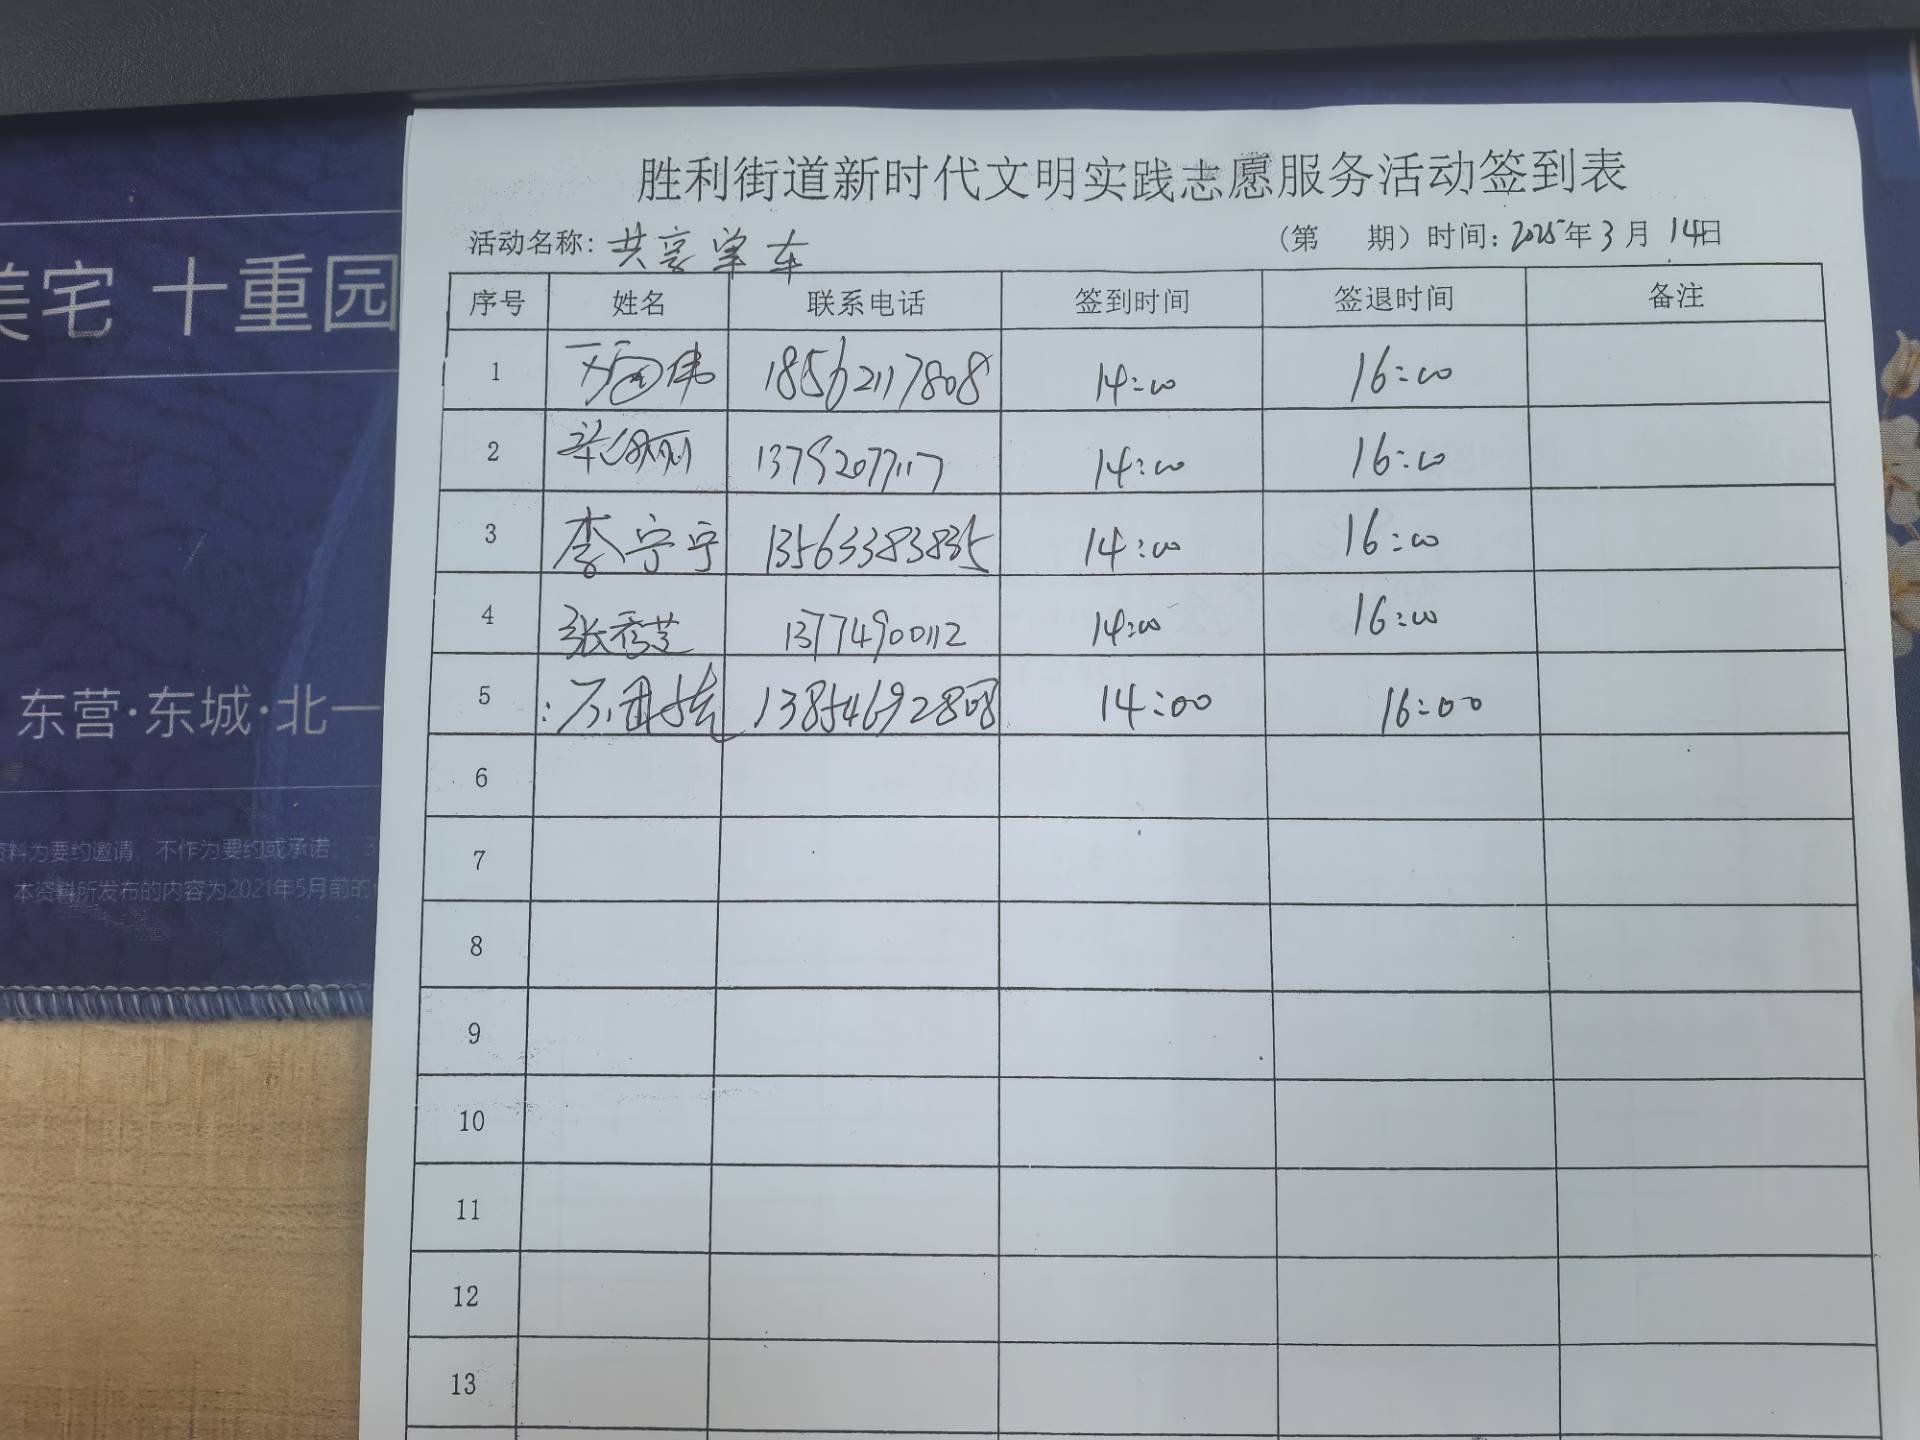 胜利街道新时代文明实践志愿服务活动签到表
活动名称：共享单车 （第 期）时间：2025年3月14日
序号 姓名 联系电话 签到时间 签退时间 备注
1 18562117808 14:00 16:00
2 13792077117 14:00 16:00
3 李宁宁 13563383835 14:00 16:00
4 张秀芝 13774900112 14:00 16:00
5 13854692808 14:00 16:00
6
7
8
9
10
11
12
13
美宅 十重园
东营·东城·北一
资料为要约邀请，不作为要约或承诺，
本资料所发布的内容为2021年5月前的